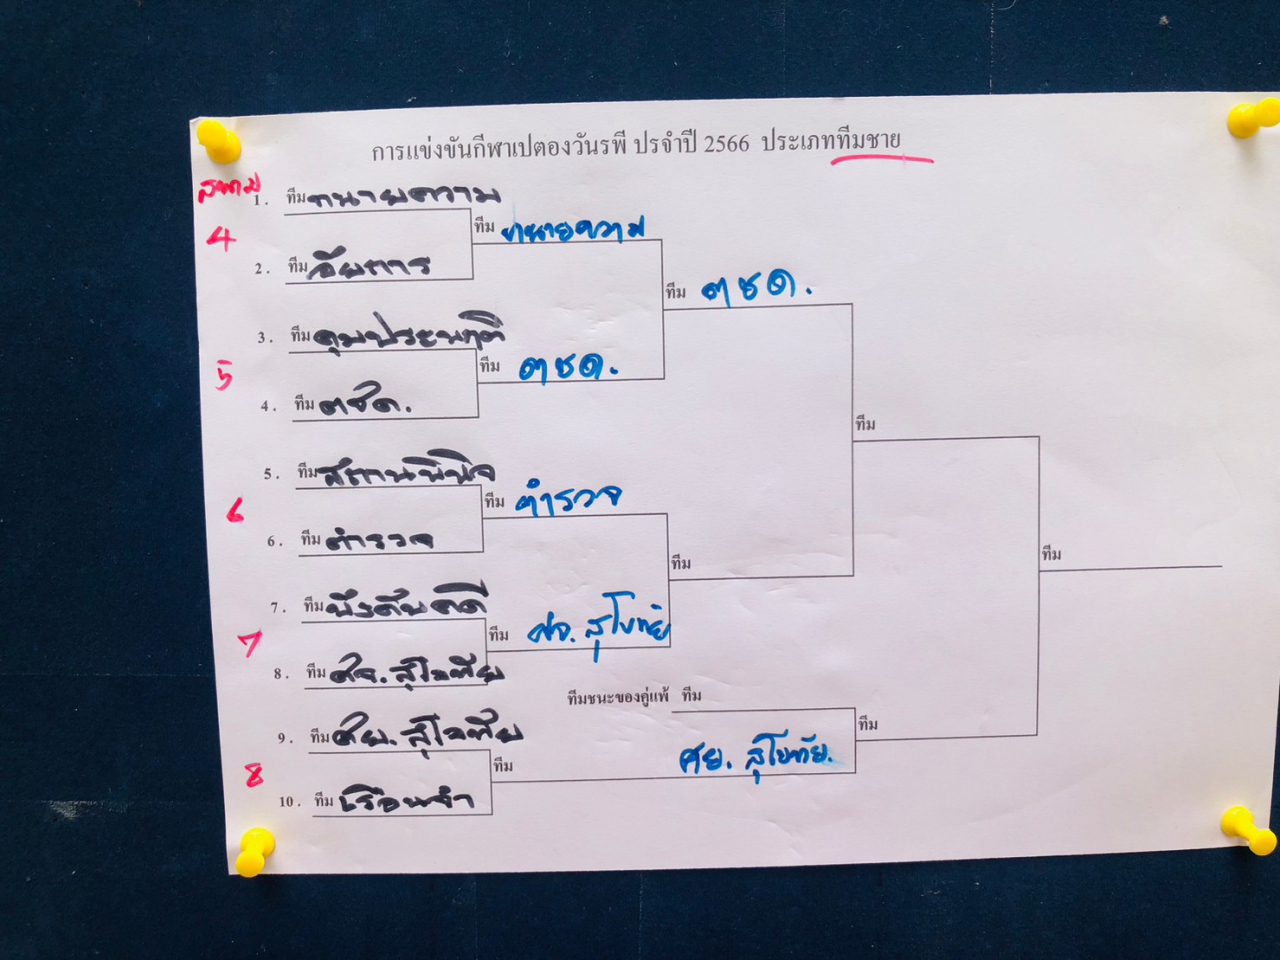 การแข่งขันกีฬาเปตองวันรพี ปรจำปี 2566 ประเภททีมชาย
สนาม
1. ทีม ทนายความ
ทีม ทนายความ
4
2. ทีม อัยการ
ทีม ตชด.
3. ทีม คุมประพฤติ
ทีม ตชด.
5
4. ทีม ตชด.
ทีม
5. ทีม สถานพินิจ
ทีม ตำรวจ
6
6. ทีม ตำรวจ
ทีม
ทีม
7. ทีม บังคับคดี
ทีม ศจ. สุโขทัย
7
8. ทีม ศจ. สุโขทัย
ทีมชนะของคู่แพ้ ทีม
9. ทีม ศย. สุโขทัย
ทีม
ทีม
ศย. สุโขทัย.
8
10. ทีม เรือนจำ